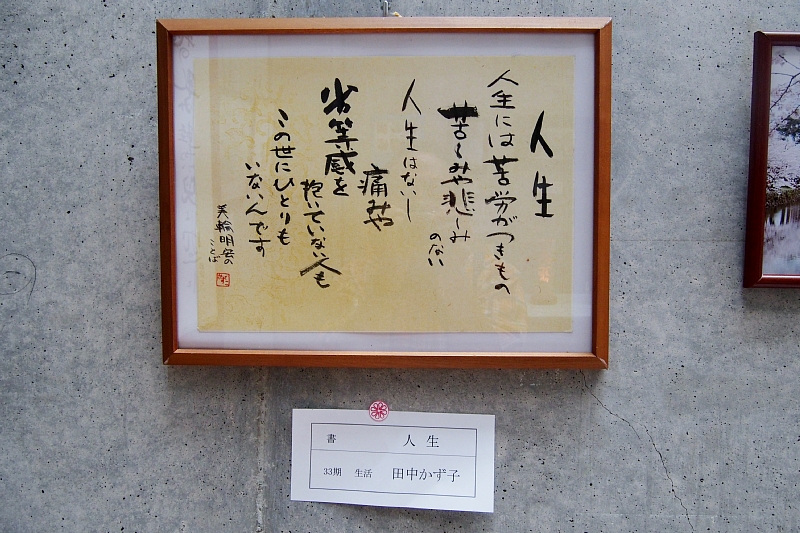 人生
人生には苦労がつきもの
苦しみや悲しみ
のない
人生はないし
痛みや
劣等感を
抱いていない人も
この世にひとりも
いないんです
美輪明宏の
ことば
書 人生
33期 生活 田中かず子